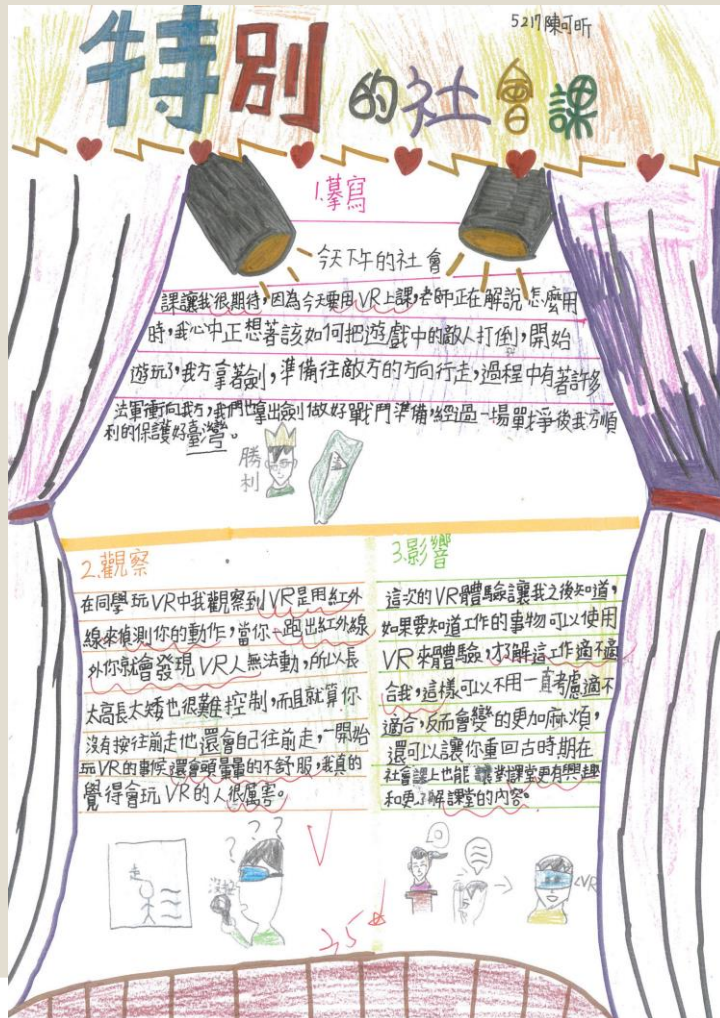 5217陳可昕
特別的社會課
1.摹寫
今天下午的社會
課讓我很期待,因為今天要用VR上課,老師正在解說怎麼用
時,我心中正想著該如何把遊戲中的敵人打倒,開始
遊玩了,我方拿著劍,準備往敵方的方向行走,過程中有著許多
法軍衝向我方,我們也拿出劍做好戰鬥準備,經過一場戰爭後我方順
利的保護好臺灣。
勝
利
2.觀察
在同學玩VR中我觀察到VR是用紅外
線來偵測你的動作,當你一跑出紅外線
外你就會發現VR人無法動,所以長
太高長太矮也很難控制,而且就算你
沒有按往前走他還會自己往前走,一開始
玩VR的時候還會頭暈暈的不舒服,我真的
覺得會玩VR的人很厲害。
???
走
沒按
3.影響
這次的VR體驗讓我之後知道,
如果要知道工作的事物可以使用
VR來體驗,才了解這工作適不適
合我,這樣可以不用一直考慮適不
適合,反而會變的更加麻煩,
還可以讓你重回古時期在
社會課上也能讓對課堂更有興趣
和更了解課堂的內容。
VR